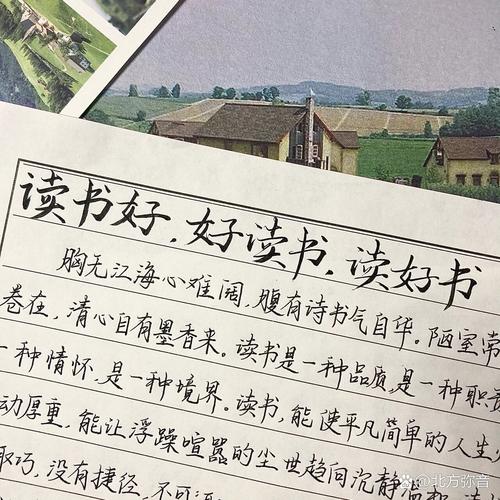 读书好，好读书，读好书
胸无江海心难阔，腹有诗书气自华。陋室常
卷在，清心自有墨香来。读书是一种品质，是一种职
一种情怀，是一种境界。读书，能使平凡简单的人生
动厚重，能让浮躁喧嚣的尘世趋向沉静
取巧，没有捷径，不可
北方弥音